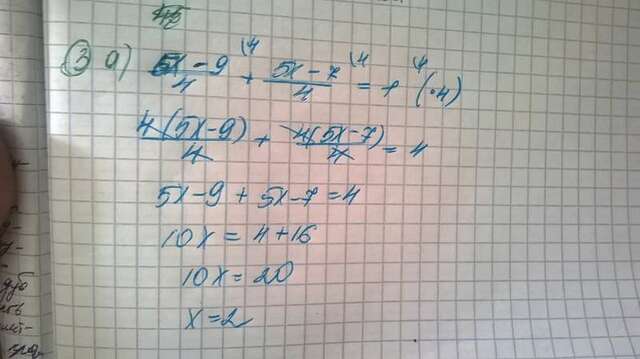 3 a) (5x-9)/4 \4 + (5x-7)/4 \4 = 1 \4 (·4)
4(5x-9)/4 + 4(5x-7)/4 = 4
5x-9 + 5x-7 = 4
10x = 4+16
10x = 20
x = 2